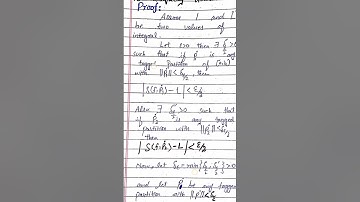 Proof:
Assume l and L
be two values of
integral.
Let ε>0 then ∃ δ'ε/2 >0
such that if Ṗ₁ is any
tagged Partition of [a,b]
with ||Ṗ₁|| < δ'ε/2, then
|S(f;Ṗ₁)-L'| < ε/2
Also ∃ δ''ε/2 >0 such that
if Ṗ₂ is any tagged
partition with ||Ṗ₂|| < δ''ε/2
then
|S(f;Ṗ₂)-L| < ε/2
Now, let δε = min{δ'ε/2, δ''ε/2} >0
and let Ṗ be any tagged
partition with ||Ṗ|| < δε